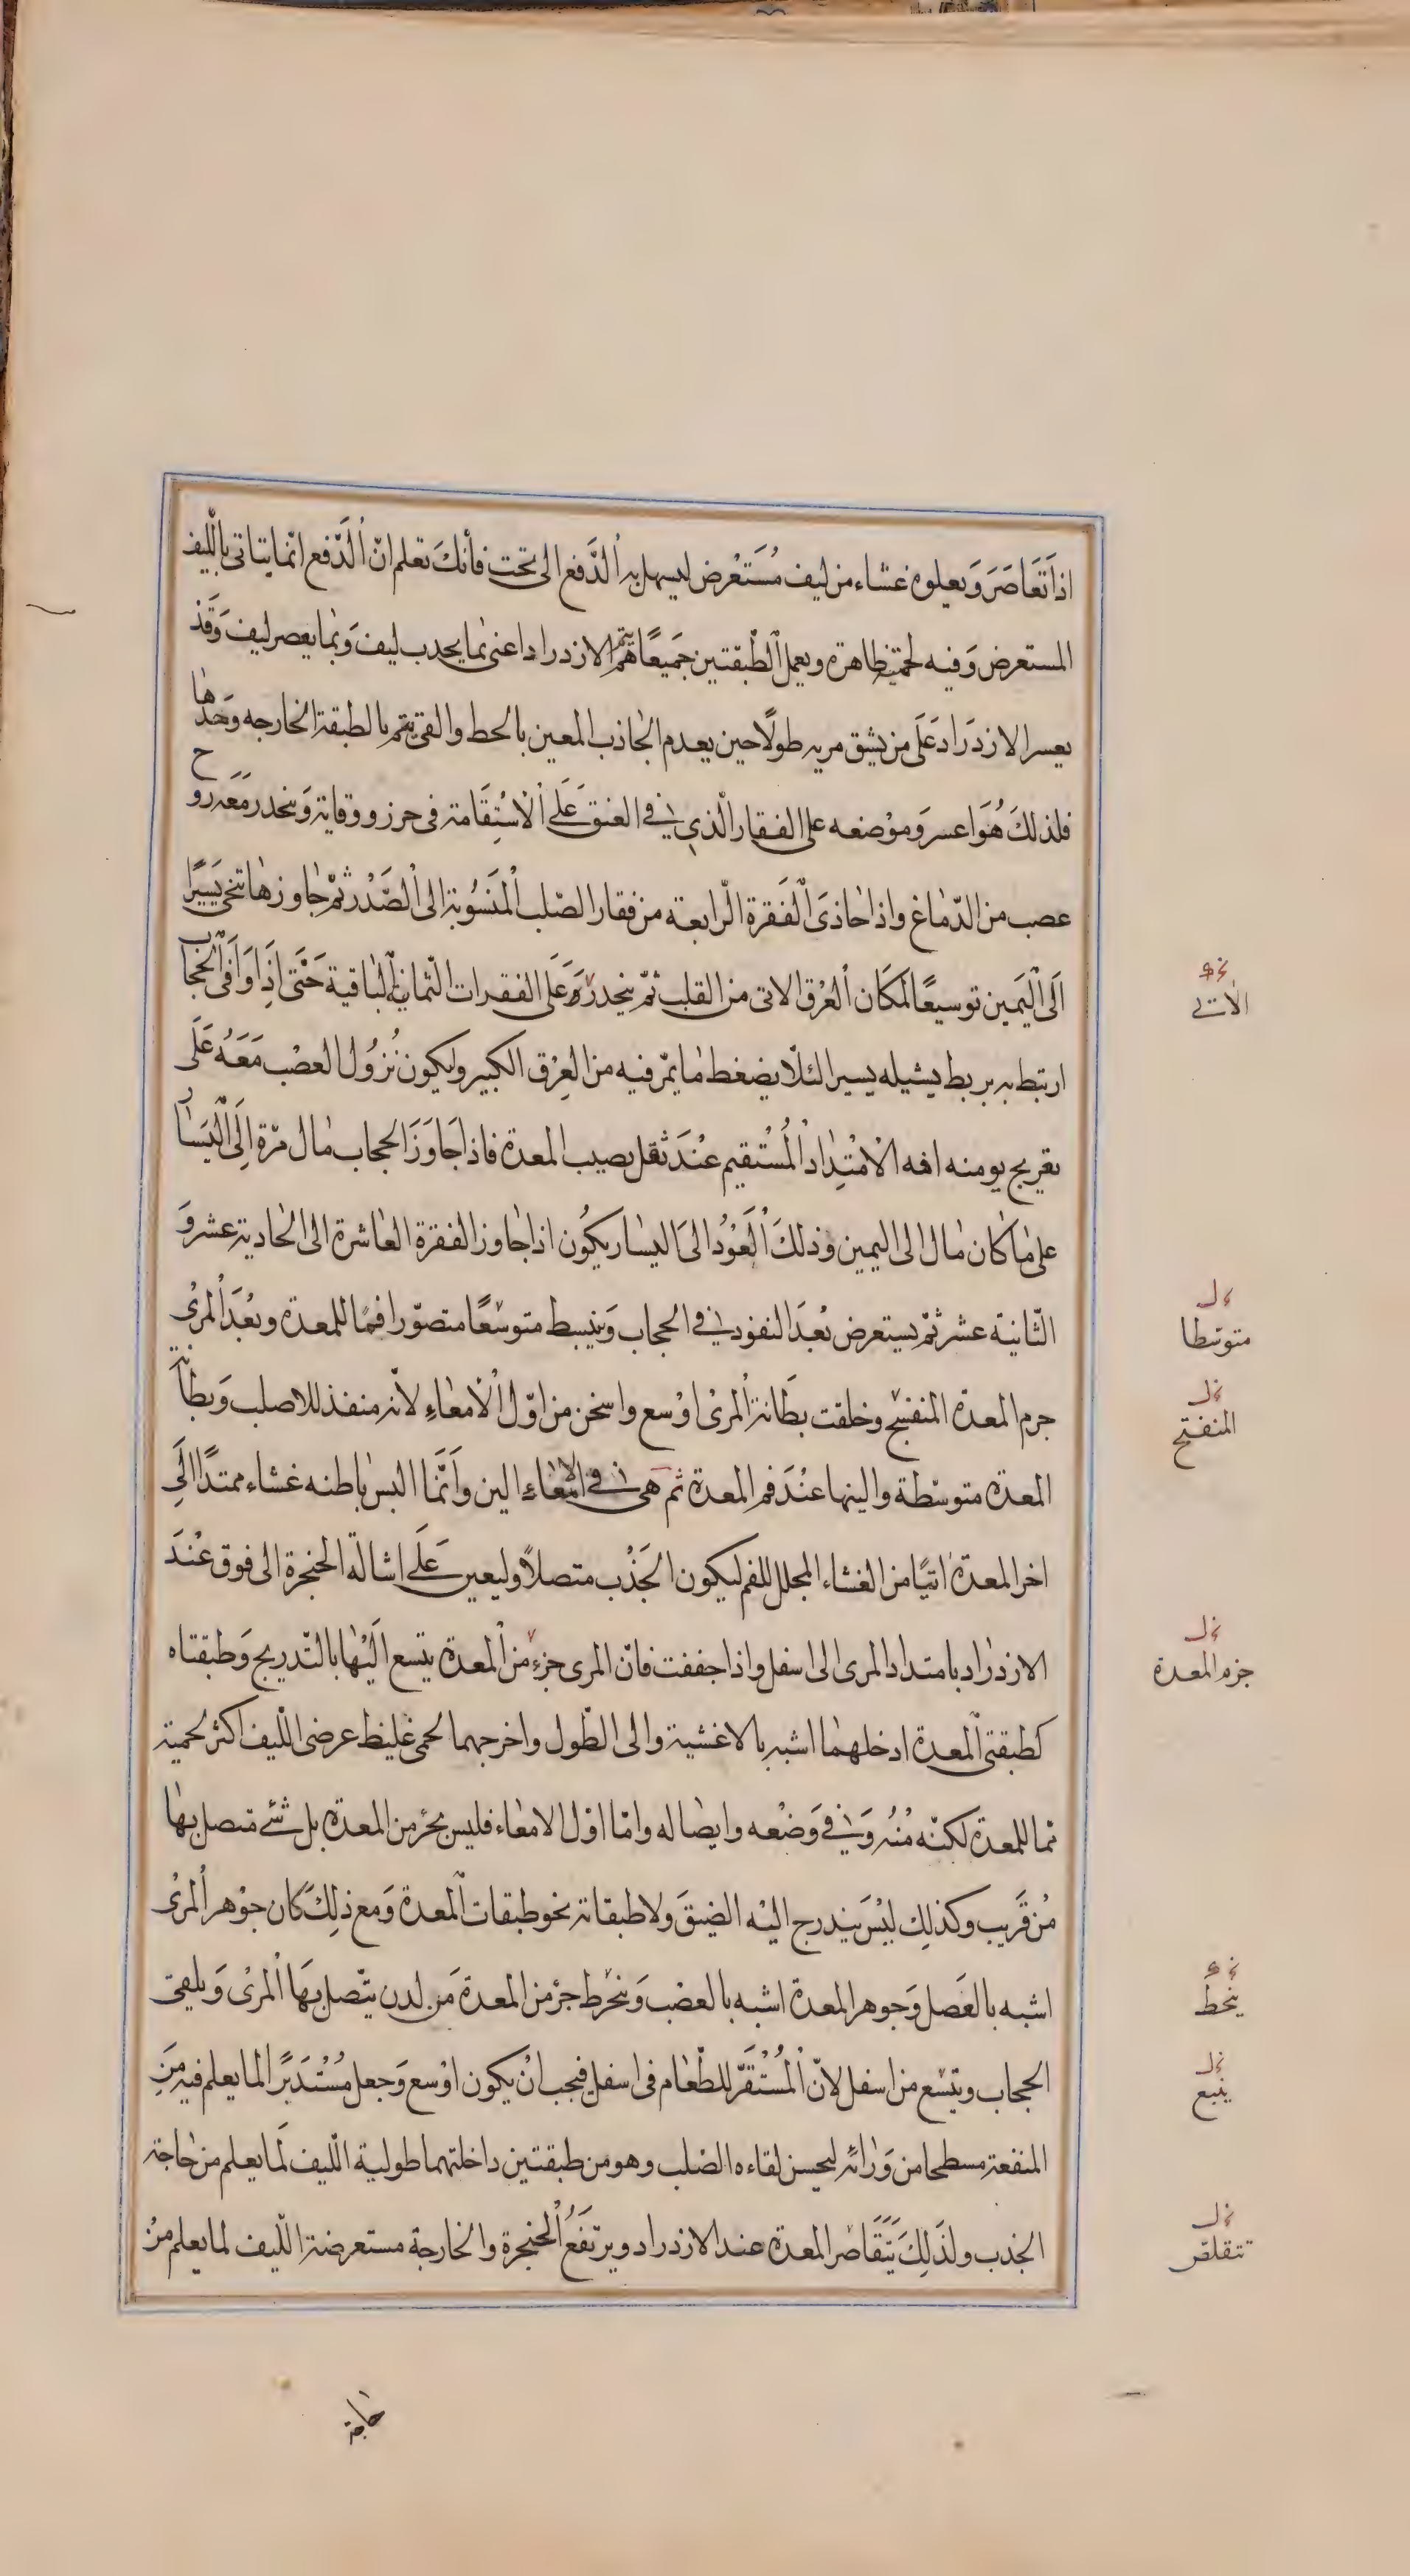 اذا تَعَاصَرَ وَيعلوه غشاء من ليف مُسْتَعْرض ليسهل به الدَّفع الى تحت فأنكَ تعلم انّ الدَّفع انّما يتاتى بالّليف
المستعرض وَفيه لحمّية ظاهرة وبعمل الطّبقتين جَميعًا يتم الازدراد اعنى بما يجدب ليف وَبما يعصر ليف وَقَد
يعسر الازدَرَاد عَلَى من يشق مريه طولًا حين يعدم الجاذب المعين بالحط والقى يتم بالطبقة الخارجه وَحدها
فلذلكَ هُوَ اعسر وَموْضعه على الفقار الّذي في العنق عَلَى الْاسْتِقَامة فى حرز ووقاية وَينحدر مَعَه زوج
عصب من الدّماغ واذا حاذىَ الْفَقرة الّرابعة من فقار الصّلب الْمَنسُوبة الى الْصَّدْر ثمّ جاوزها تنحى يَسيرًا
اَلَى الْيَمين توسيعًا لمكَان الْعرْق الاتى من القلب ثمّ ينحدر عَلَى الفقرات الّثمانية الْبَاقية حَتَّى اذَا وَافَى الْحجاب
ارتبط به بربط يشيله يسيرا لئلّا يضغط ما يمّر فيه من العِرْق الكبير وليكون نُزوُل العصْب مَعَهُ عَلَى
تعريج يومنه افه الْامْتِدَادْ الْمُسْتقيم عنْدَ ثقل يصيب المعدة فاذا جَاوَزَ الحجاب مال مرّة اِلَى الْيَسَار
على ما كان مال الى اليمين وَذلكَ الْعَوْدُ الىَ اليسار يكُون اذا جاوز الفقرة العاشرة الى الحادية عشر وَ
الثّانية عشر ثمّ يستعرض بُعدَ النفوذ في الحجاب وَينبسط متوسّعًا متصوّرا فمًا للمعدة وبعْدَ الْمرىْ
جرم المعدة المنفسح وخلقت بطَانة الْمرىْ اوْسع واسخن من اوّل الْامعاءِ لأنه منفذ للاصلب وَبطَانة
المعدة متوسّطة والينها عنْدَ فم المعدة ثم هى في الامعاء الين وَاَنّمَا البس باطنه غشاء ممتدًا الَى
اخر المعدة اتيًا من الغشاء المجلل للفم ليكون الجَذْب متصلاً وليعين عَلَى اشالة الحنجرة الى فوق عْندَ
الازدراد بامتداد المرى الى اسفل واذا حققت فانّ المرى جزء من المعدة يتسع الَيْهَا بالتّدريج وَطبقتاه
كطبقتى المعدة ادخلهما اشبه بالاغشية والى الطّول واخرجهما لحمى غليظ عرضى الّليف اكثر لحمية
مما للمعدة لكنّه منْه وَفي وَضْعه وايضاله وامّا اوّل الامعاء فليس بجزْء من المعدة بل شئ متصل بها
منْ قَريب وكذلِك ليْسَ يندرج اليْه الضيقَ ولا طبقاته نحو طبقات المعدة وَمع ذلِكَ كان جوْهر الْمرىْ
اشبه بالعَصل وَجوهر المعدة اشبه بالعصَب وَينخرط جزْء من المعدة مَن لدن يتّصل بهَا الْمرىْ وَيلقى
الحجاب ويتسع من اسفل لانّ الْمُسْتَقَرّ للطّعام فى اسفل فيجب انْ يكون اوْسع وَجعل مُسْتَديرًا لما يعلم فيه مِنَ
المنفعة مسطحا من وَرائه ليحسن لقاءه الصّلب وهو من طبقتين داخلتهما طولية الّليف لَما يعلم من حاجة
الجذب ولذَلِكَ يَتَقَاصر المعدة عند الازدراد ويرتفَعُ الْحنجرة والخارجة مستعرضة الّليف لما يعلم منْ
حاجة
الاتي
متوسطا
المنفتح
جزء المعدة
ينحط
تتقلص